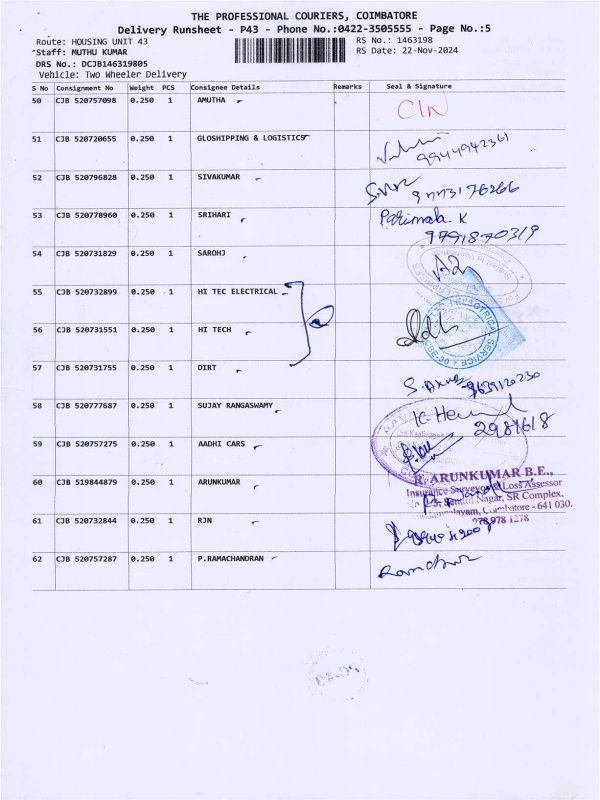 THE PROFESSIONAL COURIERS, COIMBATORE
Delivery Runsheet - P43 - Phone No.:0422-3505555 - Page No.:5
Route: HOUSING UNIT 43
RS No.: 1463198
Staff: MUTHU KUMAR
RS Date: 22-Nov-2024
DRS No.: DCJB146319805
Vehicle: Two Wheeler Delivery
S No Consignment No Weight PCS Consignee Details Remarks Seal & Signature
50 CJB 520757098 0.250 1 AMUTHA
51 CJB 520720655 0.250 1 GLOSHIPPING & LOGISTICS
9944942361
52 CJB 520796828 0.250 1 SIVAKUMAR
53 CJB 520778960 0.250 1 SRIHARI Parimala K
9791870319
54 CJB 520731829 0.250 1 SAROHJ
55 CJB 520732899 0.250 1 HI TEC ELECTRICAL
56 CJB 520731551 0.250 1 HI TECH
57 CJB 520731755 0.250 1 DIRT
58 CJB 520777687 0.250 1 SUJAY RANGASWAMY
2981618
59 CJB 520757275 0.250 1 AADHI CARS
60 CJB 519844879 0.250 1 ARUNKUMAR
R. ARUNKUMAR B.E.,
Insurance Surveyor & Loss Assessor
Nagar, SR Complex,
Coimbatore - 641 030.
978 978 1278
61 CJB 520732844 0.250 1 RJN
62 CJB 520757287 0.250 1 P.RAMACHANDRAN